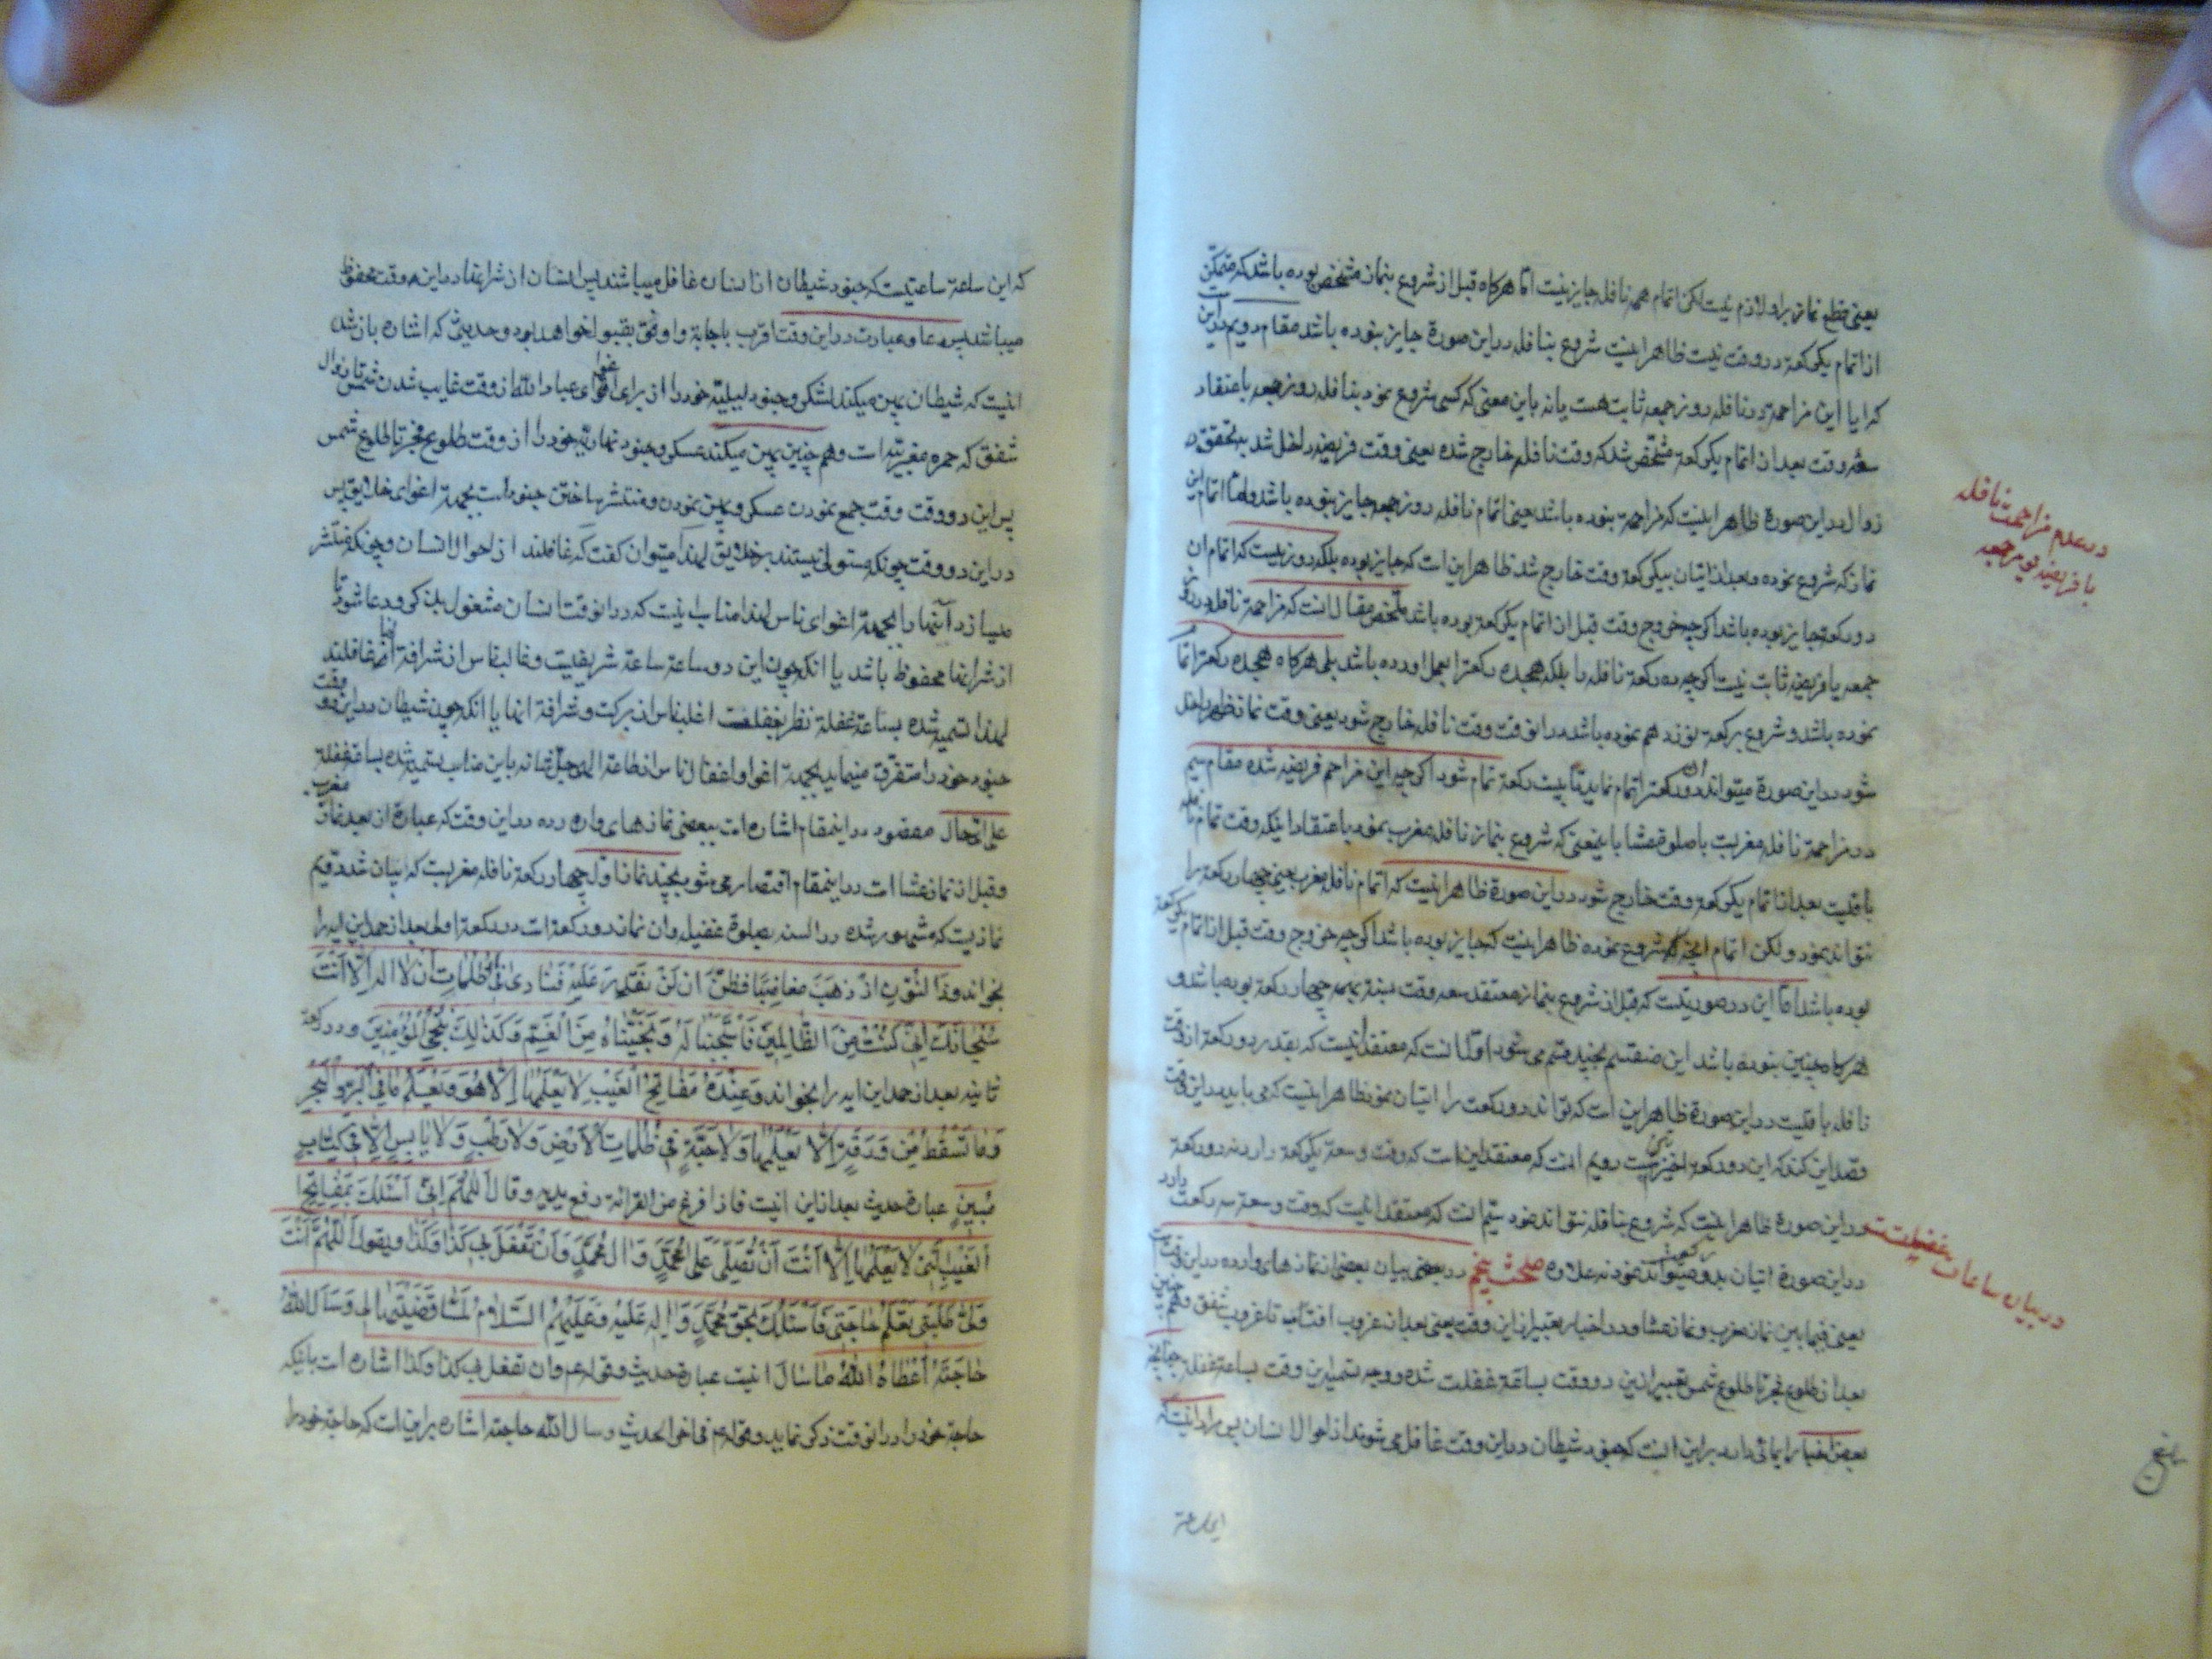 یعنی قطع نماز براو لازم نیست لکن اتمام هم نافله جایز نیست اما هرکاه قبل از شروع بنماز مشخص بوده باشد که متمکن
از اتمام یکرکعة در وقت نیست ظاهر اینست شروع بنافله در این صورة جایز نبوده باشد مقام دویم در این
که ایا این مزاحمة در نافله روز جمعه ثابت هست یا نه باین معنی که کسی شروع نمود بنافله روز جمعه باعتقاد
سعه وقت بعد از اتمام یکرکعة مشخص شد که وقت نافله خارج شده یعنی وقت فریضه داخل شد بتحقق
زوال در این صورة ظاهر اینست که مزاحمة نبوده باشد یعنی اتمام نافله روز جمعه جایز نبوده باشد و اما اتمام این
نماز که شروع نموده و بعد از اتیان بیکرکعة وقت خارج شد ظاهر این است که جایز بوده بلکه دور نیست که اتمام ان
دو رکعة جایز بوده باشد اکرچه خروج وقت قبل از اتمام یکرکعة بوده باشد ملخص مقال انست که مزاحمة نافله در روز
جمعه با فریضه ثابت نیست اکرچه ده رکعة نافله را بلکه هیجده رکعة را بعمل اورده باشد بلی هرکاه هیجده رکعة را تمام
نموده باشد و شروع برکعة نوزدهم نموده باشد در انوقت وقت نافله خارج شود یعنی وقت نماز ظهر داخل
شود در این صورة میتواند ان دو رکعة را تمام نماید تا بیست رکعة تمام شود اکرچه این مزاحم فریضه شده مقام سیم
در مزاحمة نافله مغربست با صلوة عشا باینمعنی که شروع بنماز نافله مغرب نمود باعتقاد اینکه وقت تمام نافله
باقیست بعد از اتمام یکرکعة وقت خارج شود در این صورة ظاهر اینست که اتمام نافله مغرب یعنی چهار رکعة را
نتواند نمود و لکن اتمام انچه که شروع نموده ظاهر اینست که جایز بوده باشد اکرچه خروج وقت قبل از اتمام یکرکعة
بوده باشد اما این در صورتیست که قبل از شروع بنماز معتقد سعه وقت نسبة بهمه چهار رکعة بوده باشد و
هرکاه چنین نبوده باشد این منقسم بچند قسم می شود اول انست که معتقد انیست که بقدر دو رکعة از وقت
نافله باقیست در این صورة ظاهر این است که تواند دو رکعت را اتیان نمود ظاهر اینست که می باید در این وقت
قصد این کند که این دو رکعة اخیر نیست دویم انست که معتقد این است که وقت وسعة یکرکعة دارد نه دو رکعة
در این صورة ظاهر اینست که شروع بنافله نتواند نمود سیم انست که معتقد انیست که وقت وسعة سه رکعت دارد
در این صورة اتیان بدو رکعت میتواند نمود نه علاوه مبحث پنجم در بیان بعضی از نماز های وارده در این وقت است
یعنی فیما بین نماز مغرب و نماز عشا و در اخبار تعبیر از این وقت یعنی بعد از غروب افتاب تا غروب شفق و همچنین
بعد از طلوع فجر تا طلوع شمس تعبیر از این دو وقت بساعة غفلت شده و وجه تسمیه این وقت بساعة غفلة چنانچه
بعض اخبار ایمائی دارد بر این انست که جنود شیطان در این وقت غافل می شوند از احوال انسان پس مراد انیست که
در عدم مزاحمت نافله
با فریضه یوم جمعه
در بیان ساعات غفلت
که این ساعة ساعتیست که جنود شیطان از انسان غافل میباشند پس انسان از شر انها در این وقت محفوظ
میباشد پس دعا و عبادت در این وقت اقرب باجابة و اوفق بقبول خواهد بود و حدیثی که اشاره باز شد
انیست که شیطان پهن میکند لشکر و جنود لیلیة خود را از برای اغوای عباد الله از وقت غایب شدن شمس تا زوال
شفق که حمره مغربیه است و هم چنین پهن میکند عسکر و جنود نهاریة خود را از وقت طلوع فجر تا طلوع شمس
پس این دو وقت وقت جمع نمودن عسکر و پهن نمودن و منتشر ساختن جنود است بجهة اغوای خلایق پس
در این دو وقت چونکه مستولی نیستند بر خلایق لهذا میتوان کفت که غافلند از احوال انسان و چونکه منتشر
میسازد انها را بجهة اغوای ناس لهذا مناسب انیست که در انوقت انسان مشغول بذکر و دعا شود تا
از شر انها محفوظ باشد یا انکه چون این دو ساعة ساعة شریفیست و غالب ناس از شرافة انها غافلند
لهذا تسمیه شده بساعة غفلة نظر بغفلت اغلب ناس از برکت و شرافة انها یا انکه چون شیطان در این دو وقت
جنود خود را متفرق مینماید بجهة اغوا و اغفال ناس از طاعة اله جل شانه باین مناسبت تسمیه شده بساعة غفلة
علی ای حال مقصود در اینمقام اشاره است ببعضی نماز های وارده در این وقت که عبارة از بعد نماز مغرب
و قبل از نماز عشا است در اینمقام اقتصار می شود بچند نماز اول چهار رکعة نافله مغربست که بیان شد دویم
نمازیست که مشهور شده در السنه بصلوة غفیله و ان نماز دو رکعة است در رکعة اولی بعد از حمد این ایه را
بخواند وَذَا النُّونِ اِذْ ذَهَبَ مُغَاضِبًا فَظَنَّ اَنْ لَنْ نَقْدِرَ عَلَیْهِ فَنَادیٰ فِی الظُّلُمَاتِ اَنْ لَا اِلٰهَ اِلَّا اَنْتَ
سُبْحَانَكَ اِنِّی كُنْتُ مِنَ الظَّالِمِینَ فَاسْتَجَبْنَا لَهُ وَنَجَّیْنَاهُ مِنَ الْغَمِّ وَكَذٰلِكَ نُنْجِی الْمُؤْمِنِینَ و در رکعة
ثانیه بعد از حمد این ایه را بخواند وَعِنْدَهُ مَفَاتِحُ الْغَیْبِ لَا یَعْلَمُهَا اِلَّا هُوَ وَیَعْلَمُ مَا فِی الْبَرِّ وَالْبَحْرِ
وَمَا تَسْقُطُ مِنْ وَرَقَةٍ اِلَّا یَعْلَمُهَا وَلَا حَبَّةٍ فِی ظُلُمَاتِ الْاَرْضِ وَلَا رَطْبٍ وَلَا یَابِسٍ اِلَّا فِی كِتَابٍ
مُبِینٍ عبارة حدیث بعد از این انیست فاذا فرغ من القرائة رفع یدیه و قال اَللّٰهُمَّ اِنِّی اَسْئَلُكَ بِمَفَاتِحِ
الْغَیْبِ الَّتِی لَا یَعْلَمُهَا اِلَّا اَنْتَ اَنْ تُصَلِّیَ عَلیٰ مُحَمَّدٍ وَاٰلِ مُحَمَّدٍ وَاَنْ تَفْعَلَ بِی كَذَا وَكَذَا وَیَقُولُ اَللّٰهُمَّ اَنْتَ
وَلِیُّ نِعْمَتِی وَالْقَادِرُ عَلیٰ طَلِبَتِی تَعْلَمُ حَاجَتِی فَاَسْئَلُكَ بِحَقِّ مُحَمَّدٍ وَاٰلِهِ عَلَیْهِ وَعَلَیْهِمُ السَّلَامُ لَمَّا قَضَیْتَهَا لِی وَسَاَلَ اللّٰهَ
حَاجَتَهُ اَعْطَاهُ اللّٰهُ مَا سَاَلَ انیست عبارة حدیث و قوله ع و ان تفعل بی کذا و کذا اشاره است باینکه
حاجة خود را در انوقت ذکر نماید و قوله ع فی اخر الحدیث و سال الله حاجته اشاره بر این است که حاجة خود را